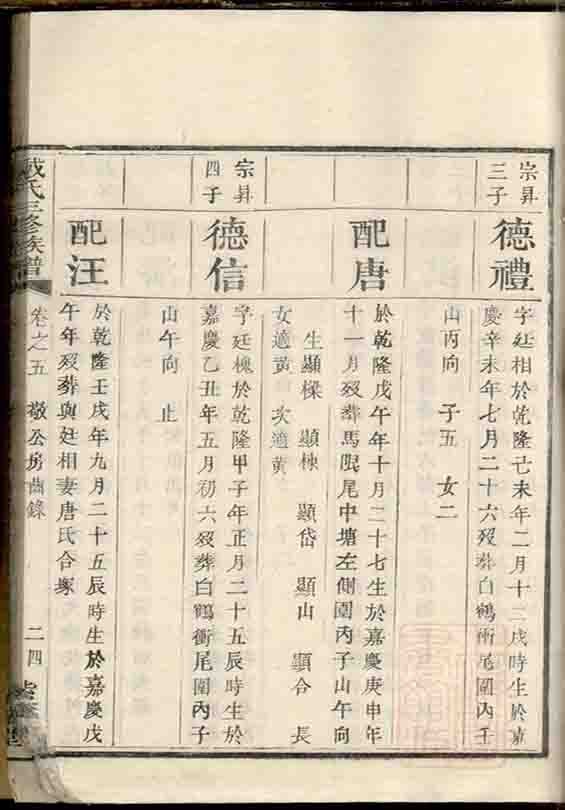 宗昇
三子
德禮
字廷相於乾隆己未年二月十二戌時生於嘉
慶辛未年七月二十六殁葬白鶴衝尾園丙壬
山丙向 子五 女二
配唐
於乾隆戊午年十月二十七生於嘉慶庚申年
十一月殁葬馬眼尾中塘左側園丙子山午向
生顯樑 顯棟 顯岱 顯山 顯合 長
女適黃 次適黃
宗昇
四子
德信
字廷槐於乾隆甲子年正月二十五辰時生於
嘉慶乙丑年五月初六殁葬白鶴衝尾園丙子
山午向 止
配汪
於乾隆壬戌年九月二十五辰時生於嘉慶戊
午年殁葬與廷相妻唐氏合塚
戴氏三修族譜
卷之五 敬公房齒錄 二四